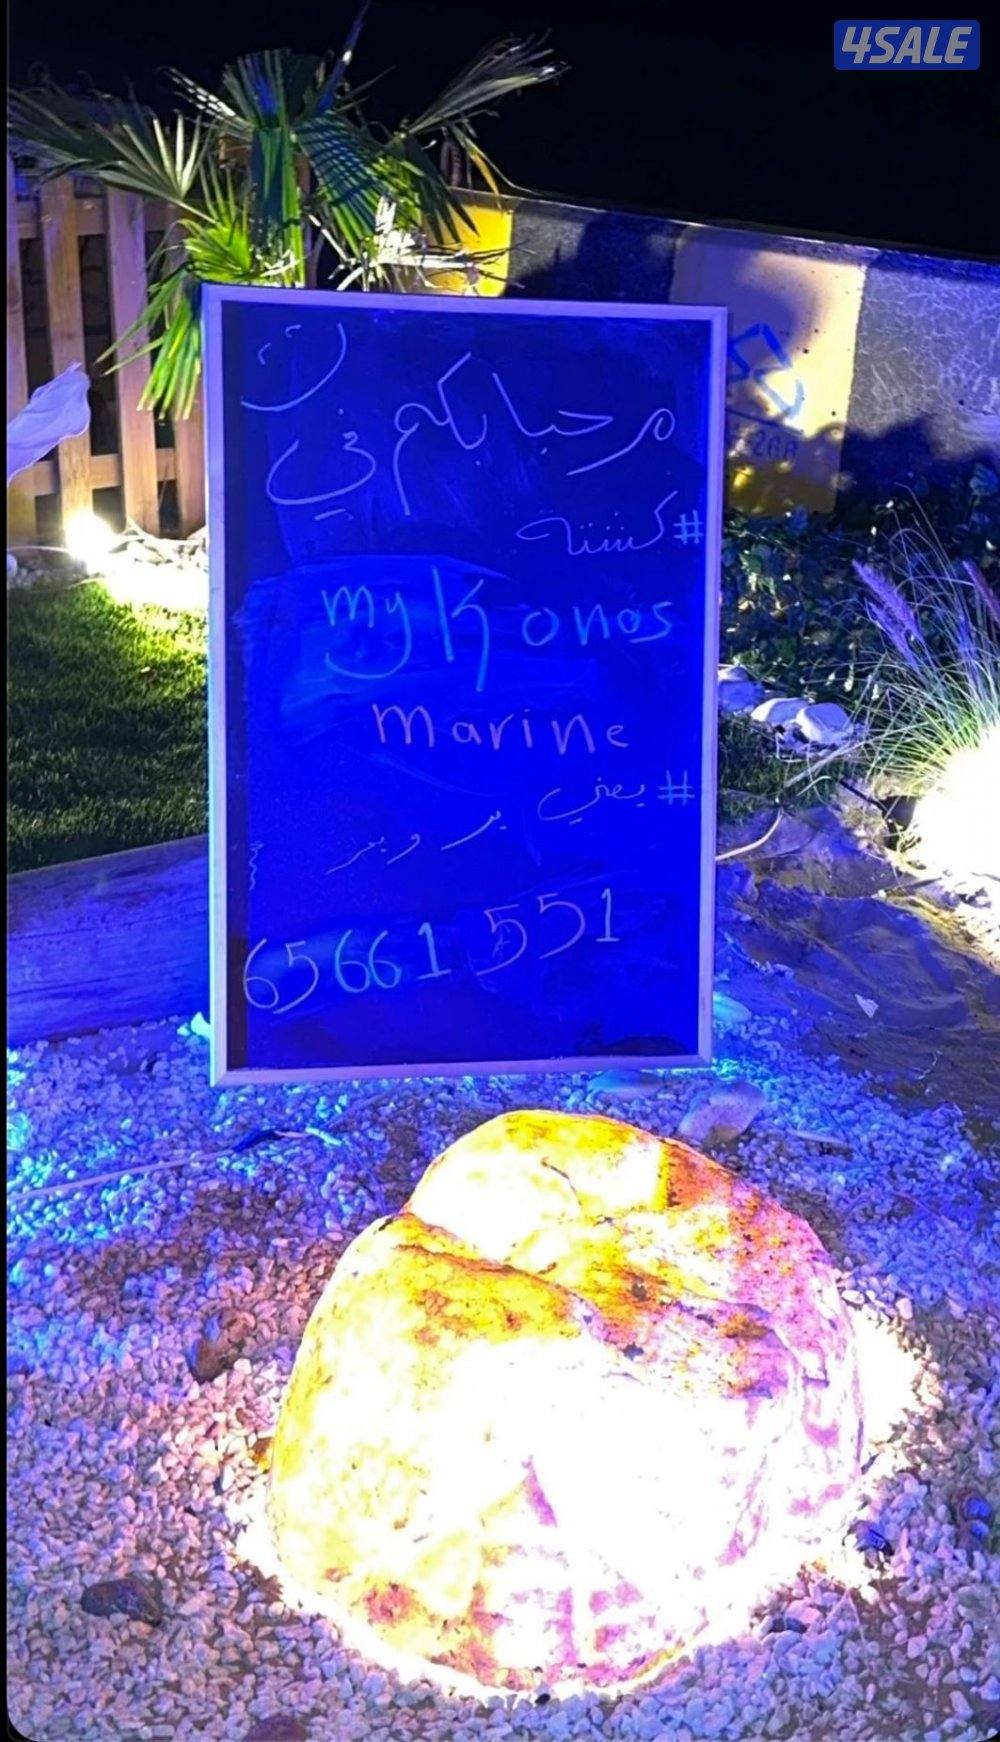 4SALE
مرحبا بكم في
#كشته
mykonos
marine
#يعني بر وبحر
65661551